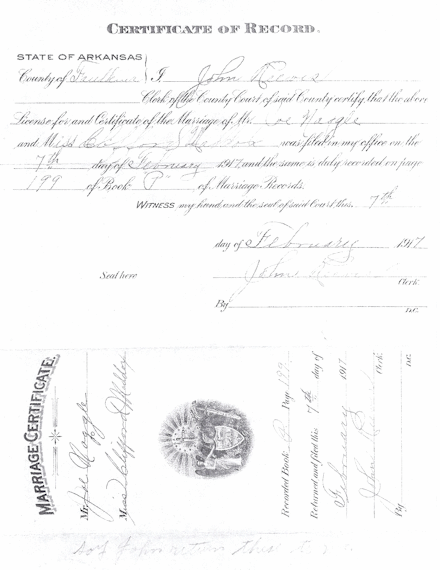 CERTIFICATE OF RECORD.
STATE OF ARKANSAS
County of Faulkner } I, John
Clerk of the County Court of said County certify, that the above
License for and Certificate of the Marriage of Mr. Joe Naggle
and Miss was filed in my office on the
7th day of February 1917 and the same is duly recorded on page
199 of Book "P" of Marriage Records.
WITNESS my hand and the seal of said Court this, 7th
day of February 1917
John
Seal here
Clerk.
By D.C.
MARRIAGE CERTIFICATE.
Mr. Joe Naggle
Miss Clifford Maddox
Recorded Book P Page 199
Returned and filed this 7th day of
February 1917
John Clerk.
By D.C.